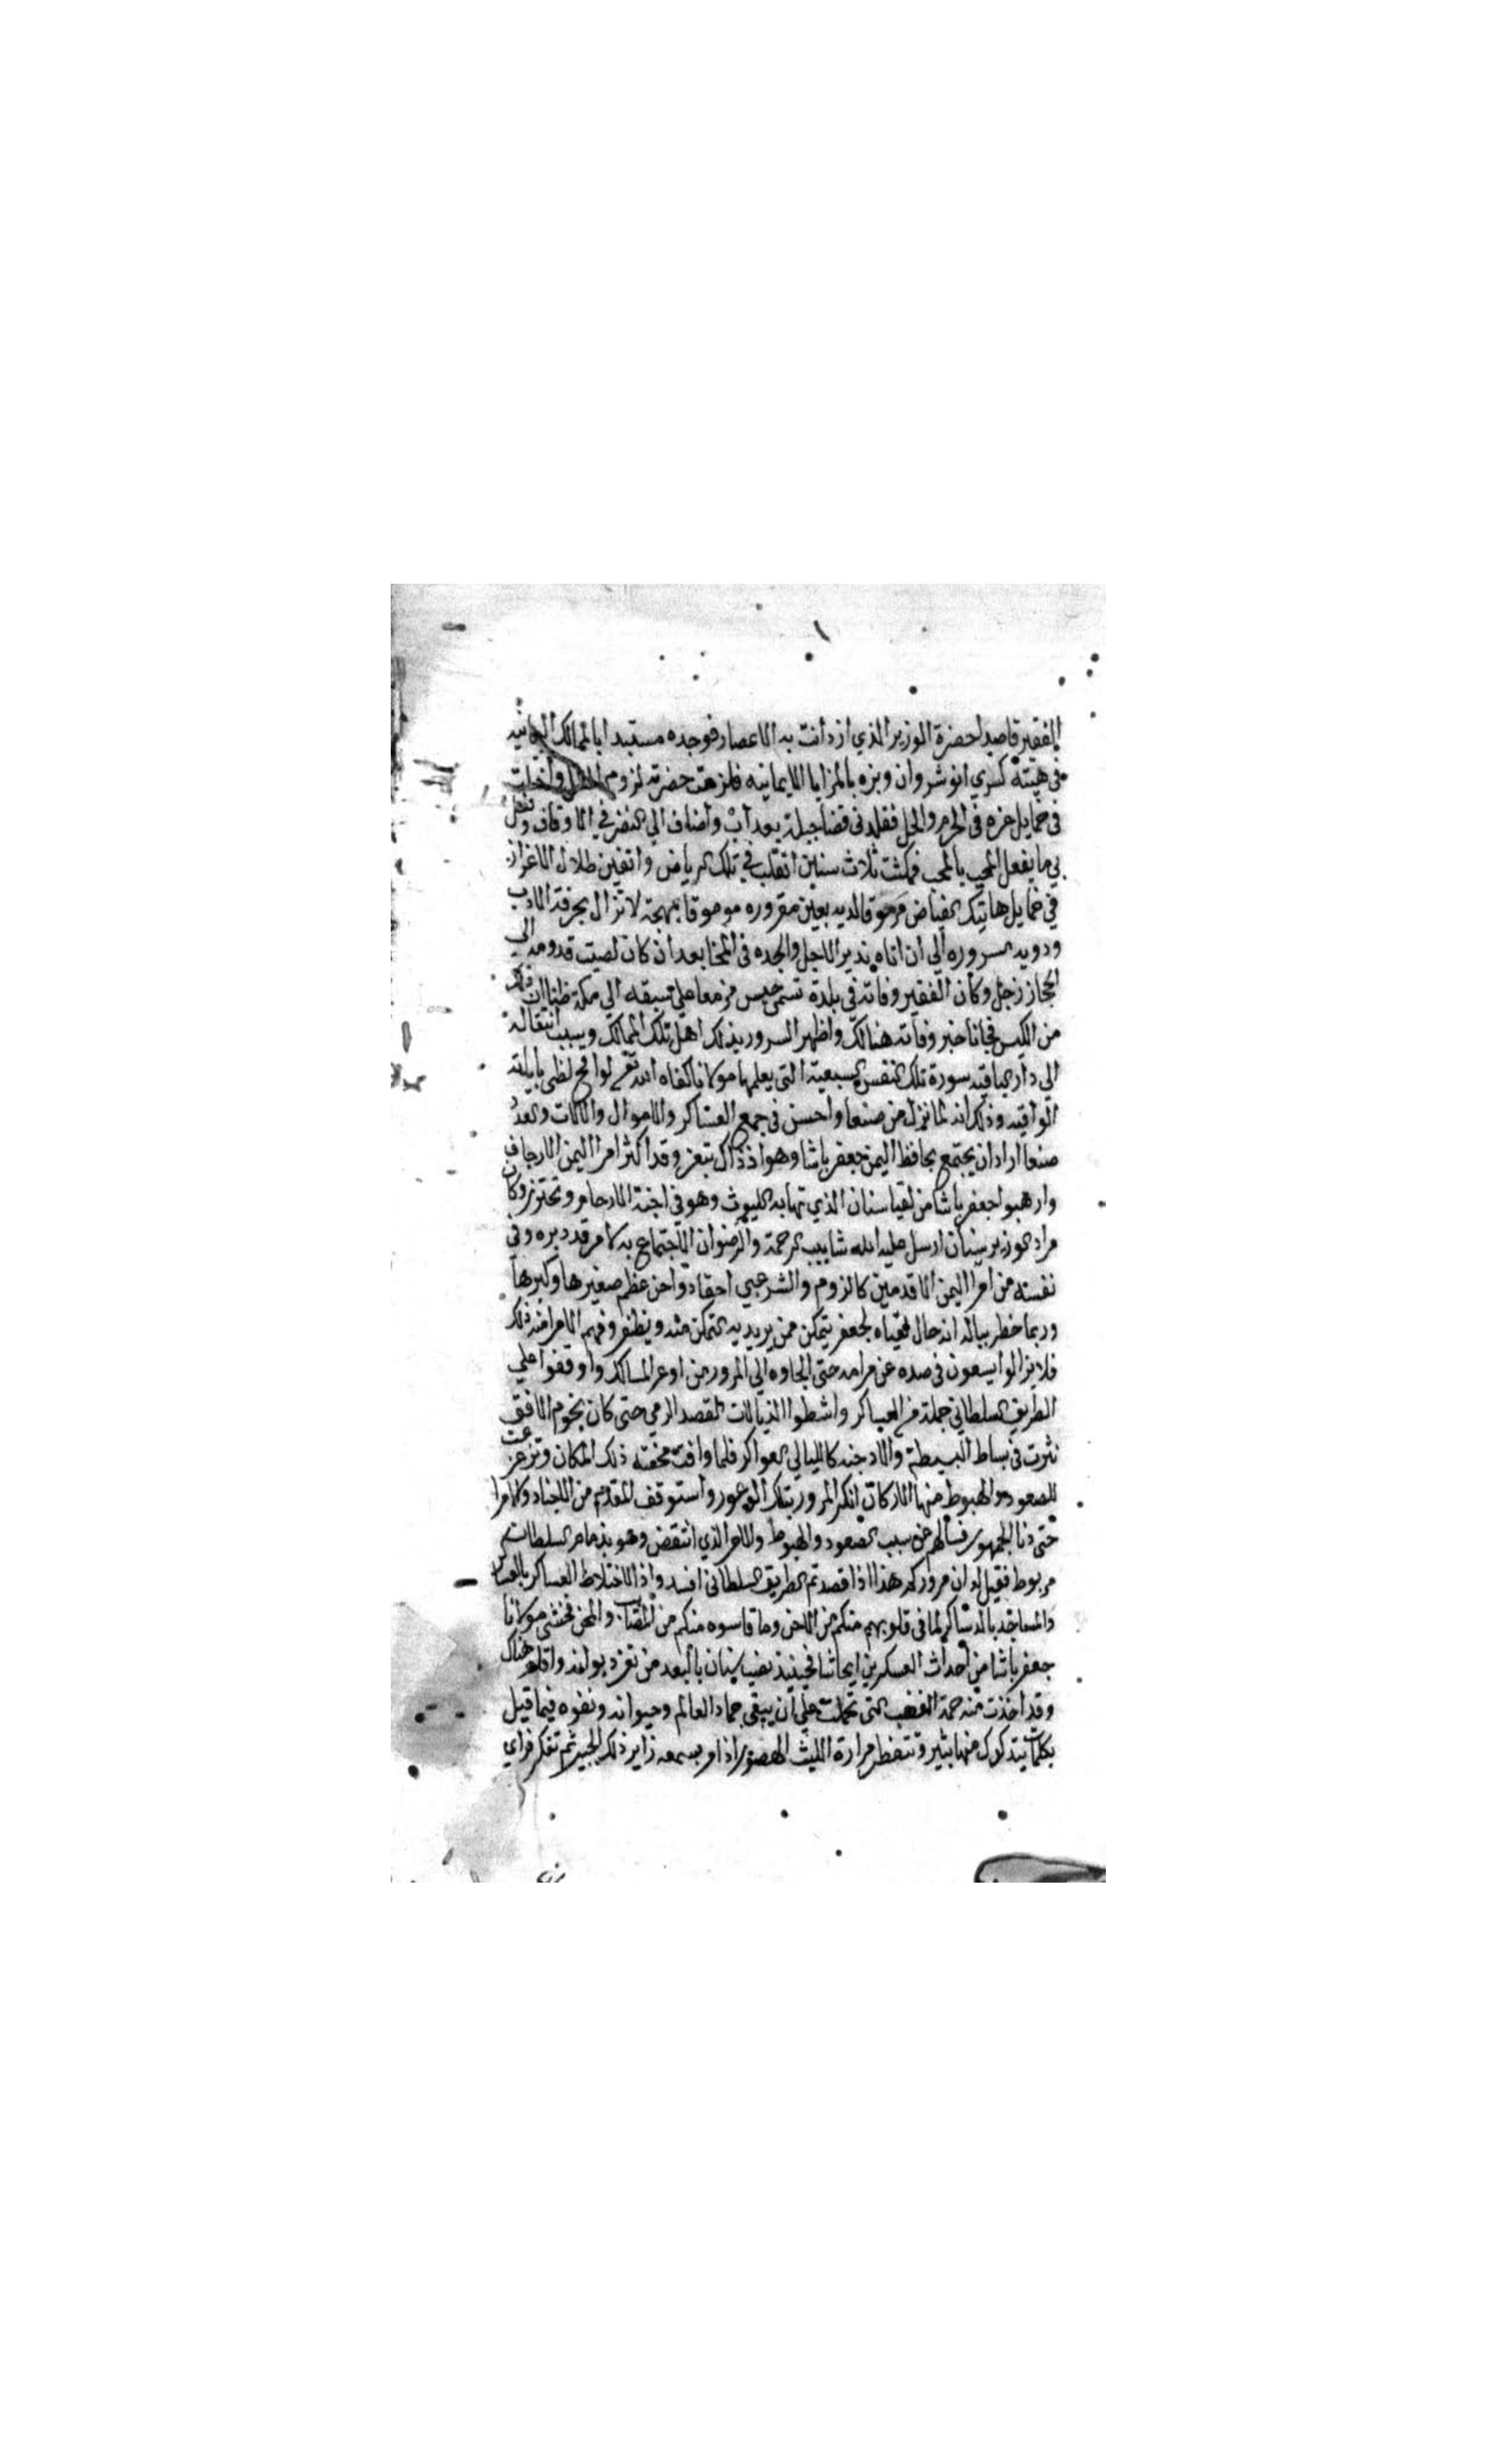 الفقير قاصدا حضرة الوزير الذي ازدانت به الاعصار فوجده مستبدا بالممالك اليمانيه
في هيئة كسري انوشروان وبزه بالمزايا الايمانيه فلزمت حضرته لزوم الظل واتخلت
في خمايل عزه في الحرم والحل فقلدني قضا جبلة بعد أب واضاف الي النظر في الاوقاف وفعل
بي ما يفعل المحب بالمحب فمكثت ثلاث سنين اتقلب في تلك الرياض واتفين ظلال الاغراز
في خمايل هاتيك الغياض مرموقا لديه بعين مقروره موموقا بمهجة لا تزال بحرفة الادب
ودويه مسروره الي ان اتاه نذير الاجل والجده في المخا بعد أن كان لصيت قدومه الي
الحجاز زجل وكان الفقير وفاته في بلدة تسمي حيس مزمعا علي سبقه الي مكة ظنا ان ذلك
من الكيس فجانا خبر وفاته هنالك واظهر السرور بذلك اهل تلك الممالك وسبب انتقاله
الي دار الباقيه سورة تلك النفس السبعية التي يعلمها مولانا كفاه الله تعالى لوافح لظى بايلته
الواقيه وذلك انه لما نزل من صنعا واحسن في جمع العساكر والاموال والالات والعدد
صنعا اراد ان يجتمع بحافظ اليمن جعفر باشا وهو اذ ذاك بتعز وقد اكثر امرا اليمن الارجاف
وارهبوا جعفر باشا من لقيا سنان الذي تهابه الليوث وهو في اجنة الارحام وتحترز وكان
مراد الوزير سنان ارسل عليه الله شابيب الرحمة والرضوان الاجتماع به لامر قد دبره وفي
نفسه من امرا اليمن الاقدمين كالزوم والشرعبي احقاد واحن عظم صغيرها وكبرها
وربما خطر بباله انه حال لقياه لجعفر يتمكن ممن يريد به التمكن منه ويظفر وفهم الامرا منه ذلك
فلا يزالوا يسعون في صده عن مرامه حتى الجاوه الي المرور من اوعر المسالك واوقفوا علي
الطريق السلطاني جملة من العساكر واشطوا الذبالات لقصد الرمي حتي كان نجوم الافق
نثرت في بساط البسيطة والادجنه كالليالي العواكر فلما وافت محفته ذلك المكان وتزعزعت
للصعود والهبوط منها الاركان انكر المرور بتلك الوعور واستوقف المقدم من الاجناد والامرا
حتى دنا الجمهور فسالهم عن سبب الصعود والهبوط والامر الذي انتقض وهو بذمام السلطان
مربوط فقيل له ان مروركم هذا اذا قصدتم الطريق السلطاني افسد واذا الاختلاط العساكر بالعساكر
والمساجد بالدساكر لما في قلوبهم منكم من الاحن وما قاسوه منكم من المصايب والمحن فخشي مولانا
جعفر باشا من احداث العسكرين ايحاشا فحينيذ نصب سنان بالبعد من تعز ديوانه واقام هناك
وقد اخذت منه حمة الغضب التي تحملت علي أن يبقي جماد العالم وحيوانه وتفوه فيما قيل
بكلمات يتدكدك منها ثبير وتتفطر مرارة الليث الهصور اذا مر بسمعه زاير ذلك الجبير ثم تفكر فراي